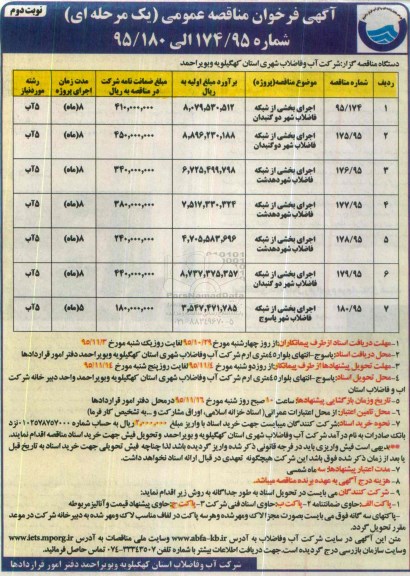 نوبت دوم
آگهی فرخوان مناقصه عمومی (یک مرحله ای)
شماره ۱۷۴/۹۵ الی ۹۵/۱۸۰
دستگاه مناقصه گزار: شرکت آب و فاضلاب شهری استان کهگیلویه و بویراحمد
ردیف شماره مناقصه موضوع مناقصه (پروژه) برآورد مبلغ اولیه به ریال مبلغ ضمانت نامه شرکت در مناقصه به ریال مدت زمان اجرای پروژه رشته موردنیاز
۱ ۹۵/۱۷۴ اجرای بخشی از شبکه فاضلاب شهر دو گنبدان ۸,۰۷۹,۵۳۰,۵۱۲ ۴۱۰,۰۰۰,۰۰۰ ۸(ماه) ۵آب
۲ ۱۷۵/۹۵ اجرای بخشی از شبکه فاضلاب شهر دوگنبدان ۸,۸۹۶,۲۳۰,۱۸۸ ۴۵۰,۰۰۰,۰۰۰ ۸(ماه) ۵آب
۳ ۱۷۶/۹۵ اجرای بخشی از شبکه فاضلاب شهر دهدشت ۶,۷۲۵,۴۹۹,۷۹۸ ۳۴۰,۰۰۰,۰۰۰ ۸(ماه) ۵آب
۴ ۱۷۷/۹۵ اجرای بخشی از شبکه فاضلاب شهر دهدشت ۷,۵۱۷,۳۳۰,۳۲۴ ۳۸۰,۰۰۰,۰۰۰ ۸(ماه) ۵آب
۵ ۱۷۸/۹۵ اجرای بخشی از شبکه فاضلاب شهر دهدشت ۴,۷۰۵,۵۸۳,۶۹۶ ۲۴۰,۰۰۰,۰۰۰ ۸(ماه) ۵آب
۶ ۱۷۹/۹۵ اجرای بخشی از شبکه فاضلاب شهر دو گنبدان ۸,۷۳۷,۳۷۵,۳۵۷ ۴۴۰,۰۰۰,۰۰۰ ۸(ماه) ۵آب
۷ ۱۸۰/۹۵ اجرای بخشی از شبکه فاضلاب شهر یاسوج ۳,۵۴۷,۴۷۱,۷۸۵ ۱۸۰,۰۰۰,۰۰۰ ۵(ماه) ۵آب
۱- مهلت دریافت اسناد از طرف پیمانکاران: از روز چهارشنبه مورخ ۹۵/۱۰/۲۹ لغایت روز یک شنبه مورخ ۹۵/۱۱/۳
۲- محل دریافت اسناد: یاسوج - انتهای بلوار ۴۵ متری ارم شرکت آب و فاضلاب شهری استان کهگیلویه و بویراحمد دفتر امور قراردادها
۳- مهلت تحویل پیشنهادها از طرف پیمانکار: از روز دو شنبه مورخ ۹۵/۱۱/۴ لغایت روز پنج شنبه مورخ ۹۵/۱۱/۱۴
۴- محل تحویل اسناد: یاسوج - انتهای بلوار ۴۵ متری ارم شرکت آب و فاضلاب شهری استان کهگیلویه و بویراحمد واحد دبیر خانه شرکت
اب و فاضلاب استان
۵- تاریخ و زمان بازگشایی پیشنهادها: ساعت ۱۰ صبح روز شنبه مورخ ۹۵/۱۱/۱۶ در محل دفتر امور قراردادها
۶- محل تامین اعتبار: از محل اعتبارات عمرانی (اسناد خزانه اسلامی، اوراق مشارکت و ... به تشخیص کار فرما)
۷- نحوه خرید اسناد: شرکت کنندگان میبایست جهت خرید اسناد با واریز مبلغ ۲,۰۰۰,۰۰۰ ریال به حساب شماره ۰۱۰۲۵۷۸۷۵۷۰۰۰ نزد
بانک صادرات به نام درآمد شرکت آب و فاضلاب شهری استان کهگیلویه و بویراحمد و تحویل فیش جهت خرید اسناد مناقصه اقدام نمایند.
**بدیهی است فیش واریزی باید در فرجه قانونی ذکر شده واریز گردیده باشد لذا چنانچه فیش تحویلی جهت خرید اسناد به تاریخ قبل
یا بعد از زمان ذکر شده فوق باشد این شرکت هیچگونه تعهدی در قبال ارائه اسناد نخواهد داشت.
۷- مدت اعتبار پیشنهادها: سه ماه شمسی
۸- هزینه درج آگهی به عهده برنده مناقصه میباشد.
۹- شرکت کنندگان می بایست در تحویل اسناد به طور جداگانه به روش زیر اقدام نمایند:
۱- پاکت الف: حاوی ضمانتنامه ۲- پاکت ب: حاوی اسناد فنی شرکت ۳- پاکت ج: حاوی پیشنهاد قیمت و آنالیز مربوطه
- پاکتهای سه گانه فوق می بایست بصورت مجزا لاک و مهر شده و هر سه پاکت در لفاف مناسب لاک و مهر شده به دبیرخانه شرکت در موعد
مقرر تحویل گردد.
متن این آگهی در سایت شرکت آب و فاضلاب به آدرس www.abfa-kb.ir وسایت ملی مناقصات به آدرس www.iets.mporg.ir
وسایت سازمان بازرسی درج گردیده است. جهت دریافت اطلاعات بیشتر با شماره تلفن ۳۳۳۴۳۵۰۷-۰۷۴ تماس حاصل فرمائید.
شرکت آب و فاضلاب استان کهگیلویه و بویراحمد دفتر امور قراردادها